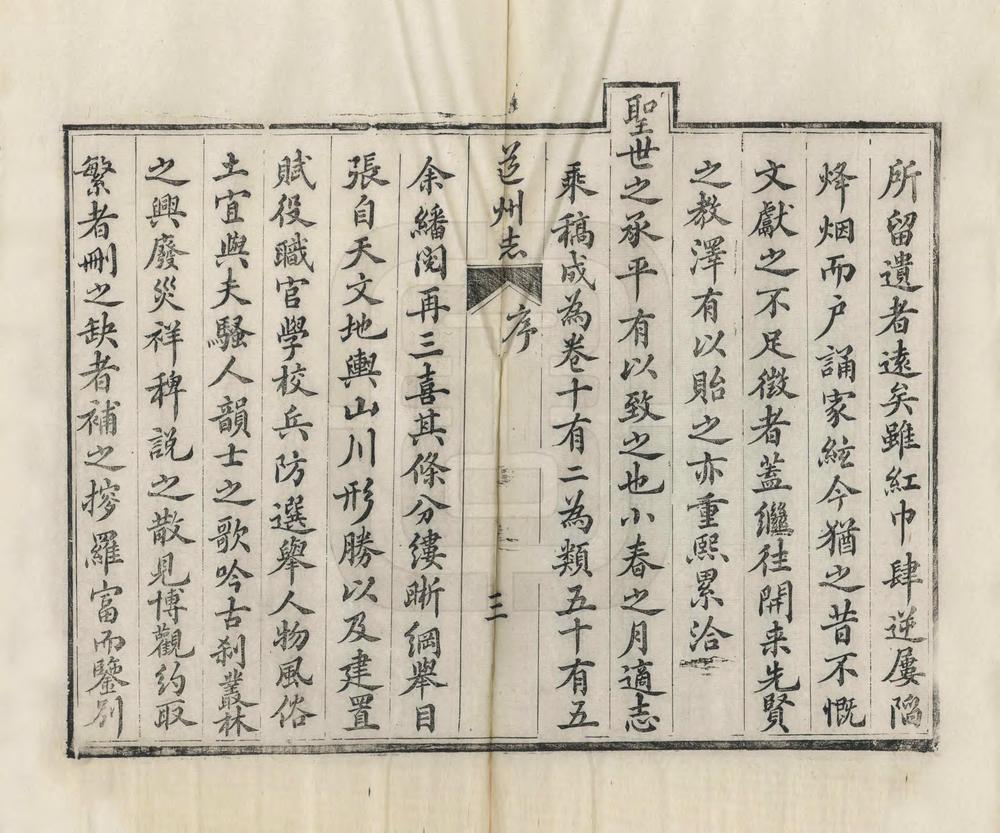 所留遺者遠矣雖紅巾肆逆屢陷
烽烟而戶誦家絃今猶之昔不慨
文獻之不足徵者蓋繼徃開来先賢
之教澤有以貽之亦重熙累洽
聖世之承平有以致之也小春之月適志
乘稿成為卷十有二為類五十有五
道州志 序 三
余繙閲再三喜其條分縷晰綱舉目
張自天文地輿山川形勝以及建置
賦役職官學校兵防選舉人物風俗
土宜與夫騷人韻士之歌吟古刹叢林
之興廢災祥稗說之散見博觀約取
繁者刪之缺者補之搜羅富而鑒別